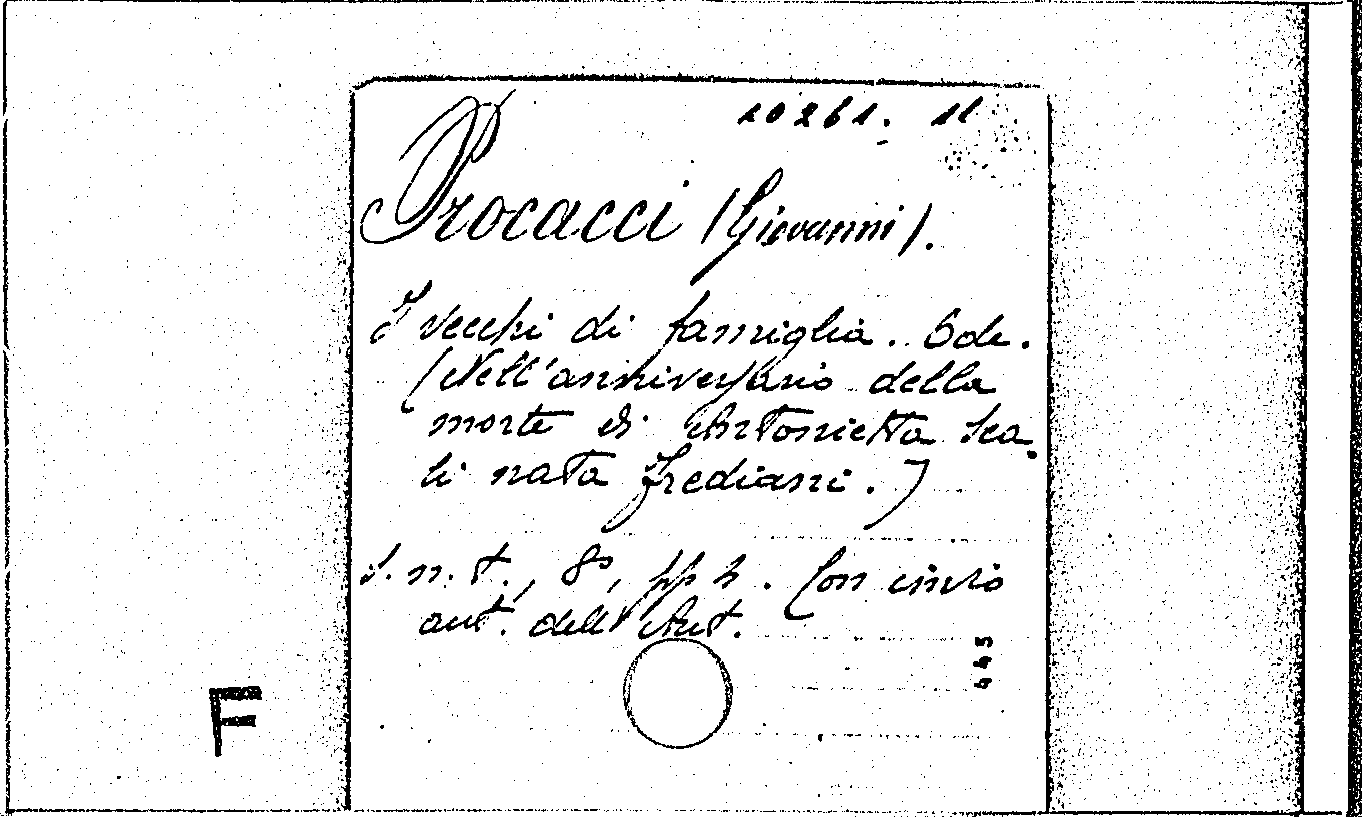 10261. 11
Procacci (Giovanni).
I vecchi di famiglia. Ode.
(Nell'anniversario della
morte di Antonietta Sca-
li nata Frediani.)
S. n. t., 8°, pp 4. Con invio
aut. dell'Aut.
445
F